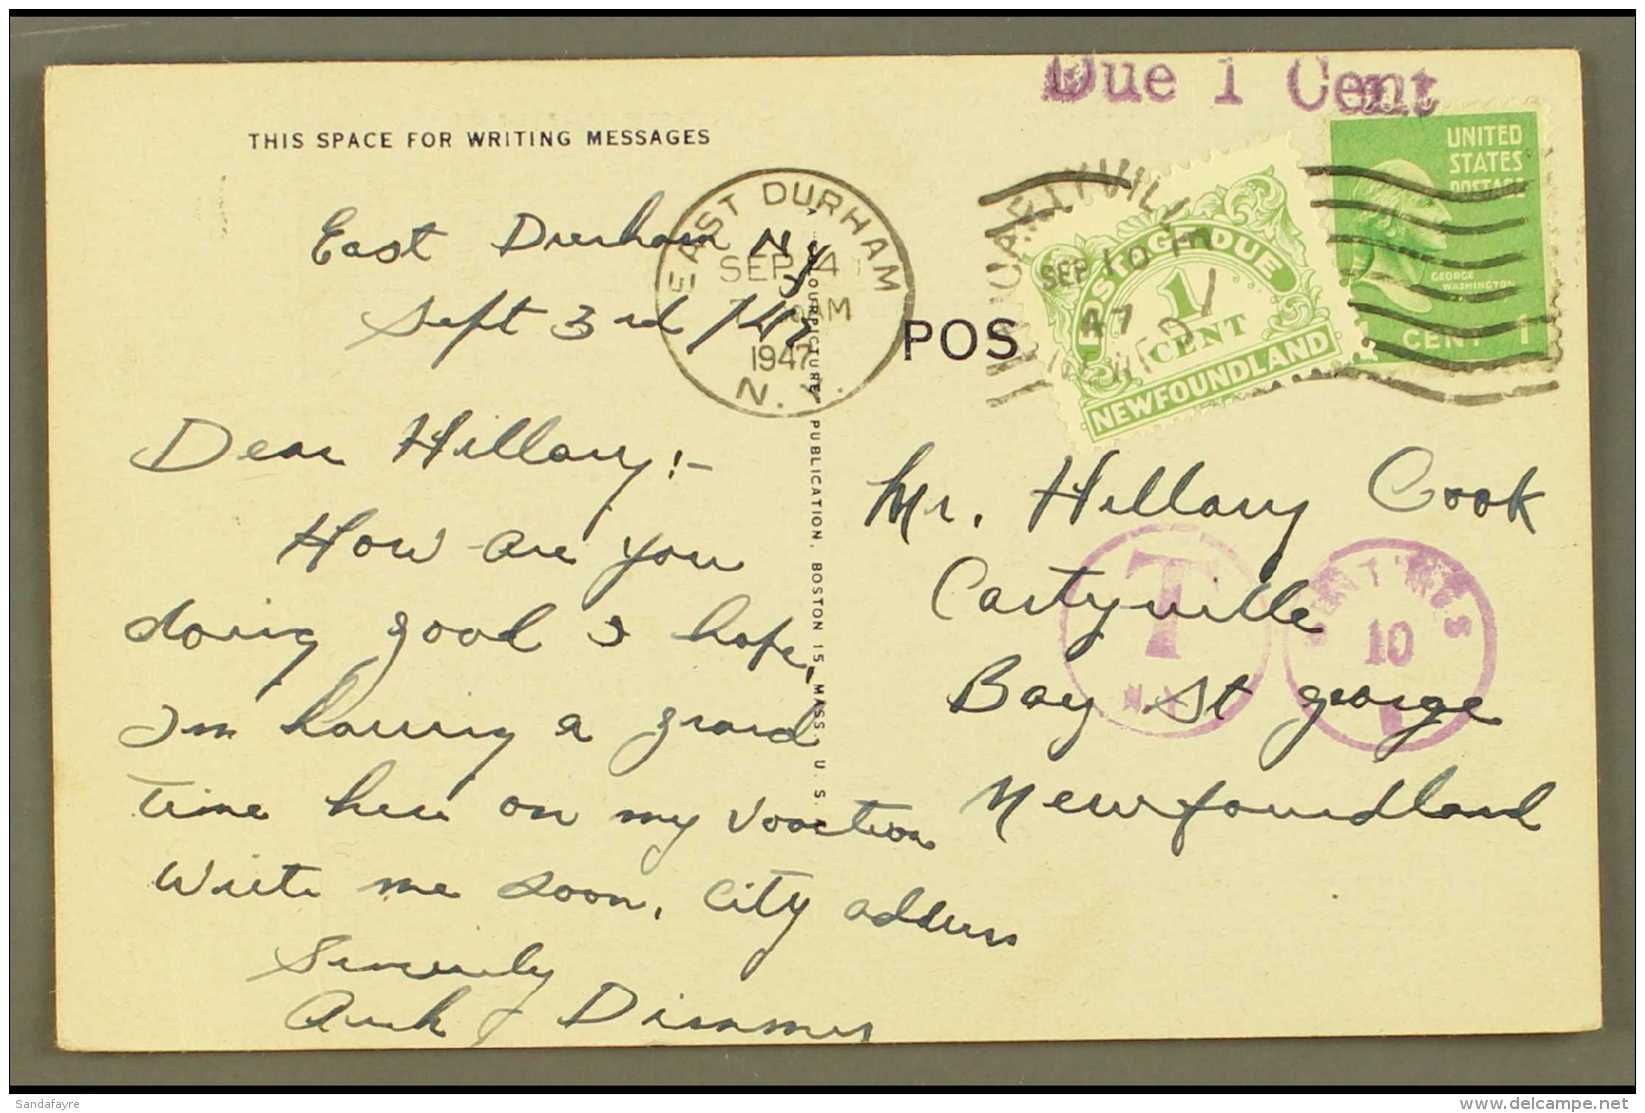 Due 1 Cent
THIS SPACE FOR WRITING MESSAGES
EAST DURHAM
SEP 4
M
1947
N.Y.
UNITED
STATES
POSTAGE
GEORGE
WASHINGTON
1 CENT 1
SEP 10
47
POSTAGE DUE
1
CENT
NEWFOUNDLAND
POS
East Durham N.Y
Sept 3rd /47
Dear Hillary:-
How are you
doing good I hope,
Im having a grand
time here on my vacation
Write me soon, City address
Sincerely
COLOURPICTURE PUBLICATION, BOSTON 15, MASS., U. S.
Mr. Hillary Cook
Cartyville
Bay St george
Newfoundland
T
N.Y.
CENTIMES
10
Sandafayre
delcampe.net